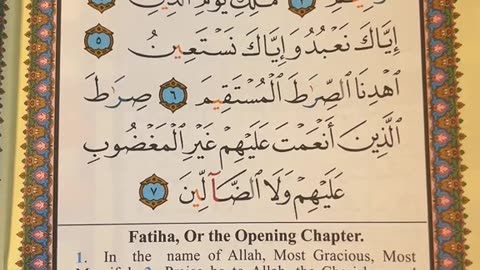 مَٰلِكِ يَوْمِ الدِّينِ
٥ إِيَّاكَ نَعْبُدُ وَإِيَّاكَ نَسْتَعِينُ
اهْدِنَا الصِّرَٰطَ الْمُسْتَقِيمَ ٦ صِرَٰطَ
الَّذِينَ أَنْعَمْتَ عَلَيْهِمْ غَيْرِ الْمَغْضُوبِ
عَلَيْهِمْ وَلَا الضَّآلِّينَ ٧
Fatiha, Or the Opening Chapter.
1. In the name of Allah, Most Gracious, Most
Praise be to Allah, the